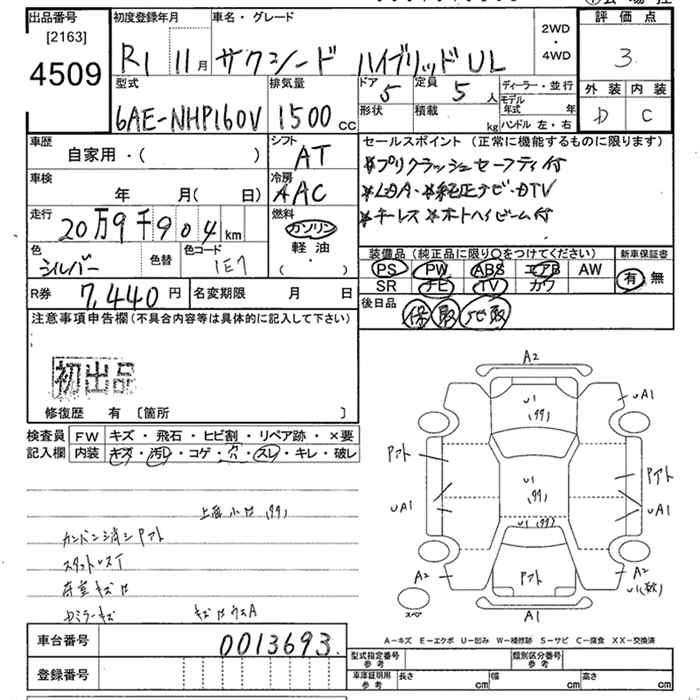 出品番号 初度登録年月 車名・グレード 評価点
[2163]
4509
R1 11月 サクシード ハイブリッドUL
2WD
4WD
3
型式 排気量 ドア 定員 ディーラー・並行 外装 内装
6AE-NHP160V 1500cc 5 5人 モデル年式 年
形状 積載 kg ハンドル 左・右
D C
車歴 シフト セールスポイント (正常に機能するものに限ります)
自家用・( ) AT
*プリクラッシュセーフティ付
車検 冷房
年 月( 日) AAC
*LDA・*純正ナビ・DTV
走行 燃料
20万9千904km ガソリン
*キーレス *オートハイビーム付
軽油
・( )
色 色替 色コード
シルバー 1E7
装備品 (純正品に限り○をつけてください) 新車保証書
PS PW ABS エアB AW
SR ナビ TV カワ
有 無
R券 7,440円 名変期限 月 日
後日品
保 取 記取
注意事項申告欄(不具合内容等は具体的に記入して下さい)
初出品
修復歴 有 [箇所 ]
検査員記入欄 FW キズ・飛石・ヒビ割・リペア跡・×要
内装 キズ・汚レ・コゲ・穴・スレ・キレ・破レ
カンバン消シPアト
スタットレスT
荷室キズ
A2
U1
UA1
Pアト
U1
Pアト
UA1
UA1
U1
A2
Pアト
A2
スペア
A1
A-キズ E-エクボ U-凹み W-補修跡 S-サビ C-腐食 XX-交換済
車台番号 0013693
登録番号
型式指定番号 参考 類別区分番号 参考
車庫証明用 参考 長さ cm 幅 cm 高さ cm